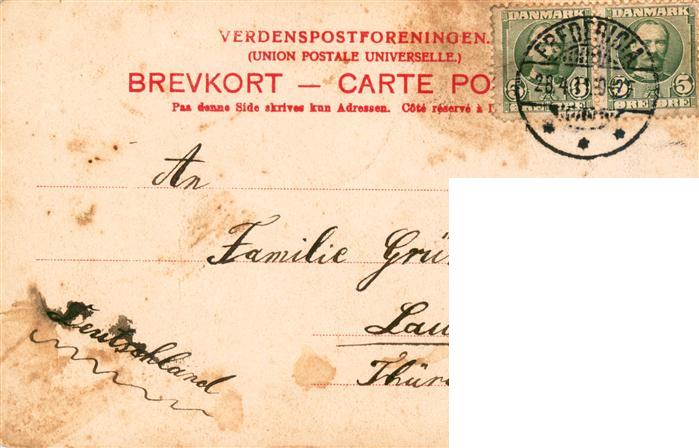 VERDENSPOSTFORENINGEN.
(UNION POSTALE UNIVERSELLE.)
BREVKORT — CARTE PO
Paa denne Side skrives kun Adressen. Côté réservé à
DANMARK DANMARK
FREDERICIA
5 5 5
ØRE
An
Familie Grü
Lau
Thür
Deutschland